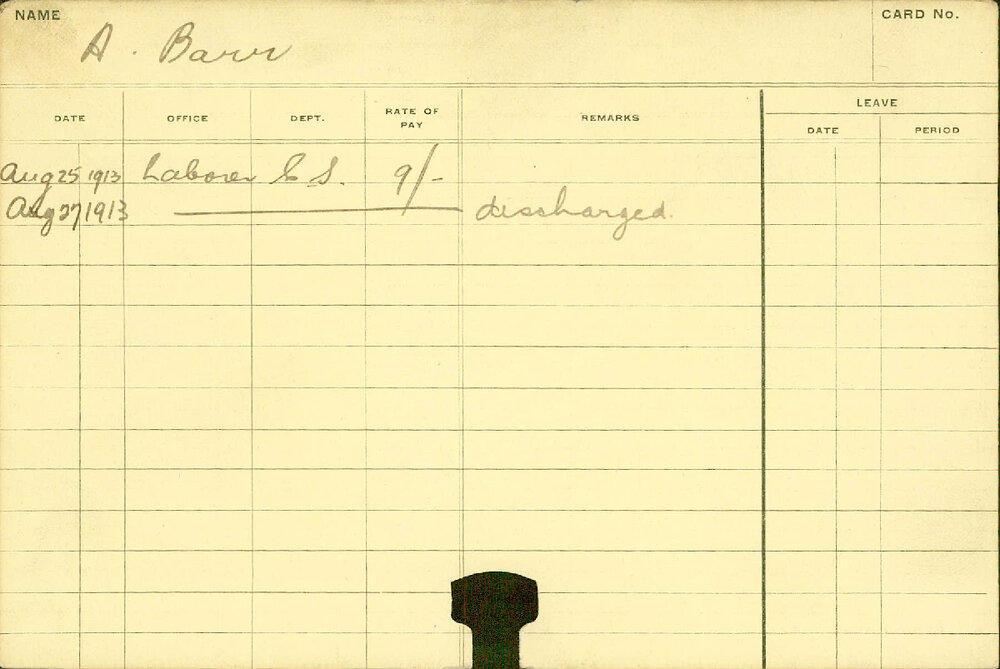 NAME
CARD No.
A. Barr
DATE OFFICE DEPT. RATE OF PAY REMARKS LEAVE
DATE PERIOD
Aug 25 1913 Laborer E S. 9/-
Aug 27 1913 discharged.